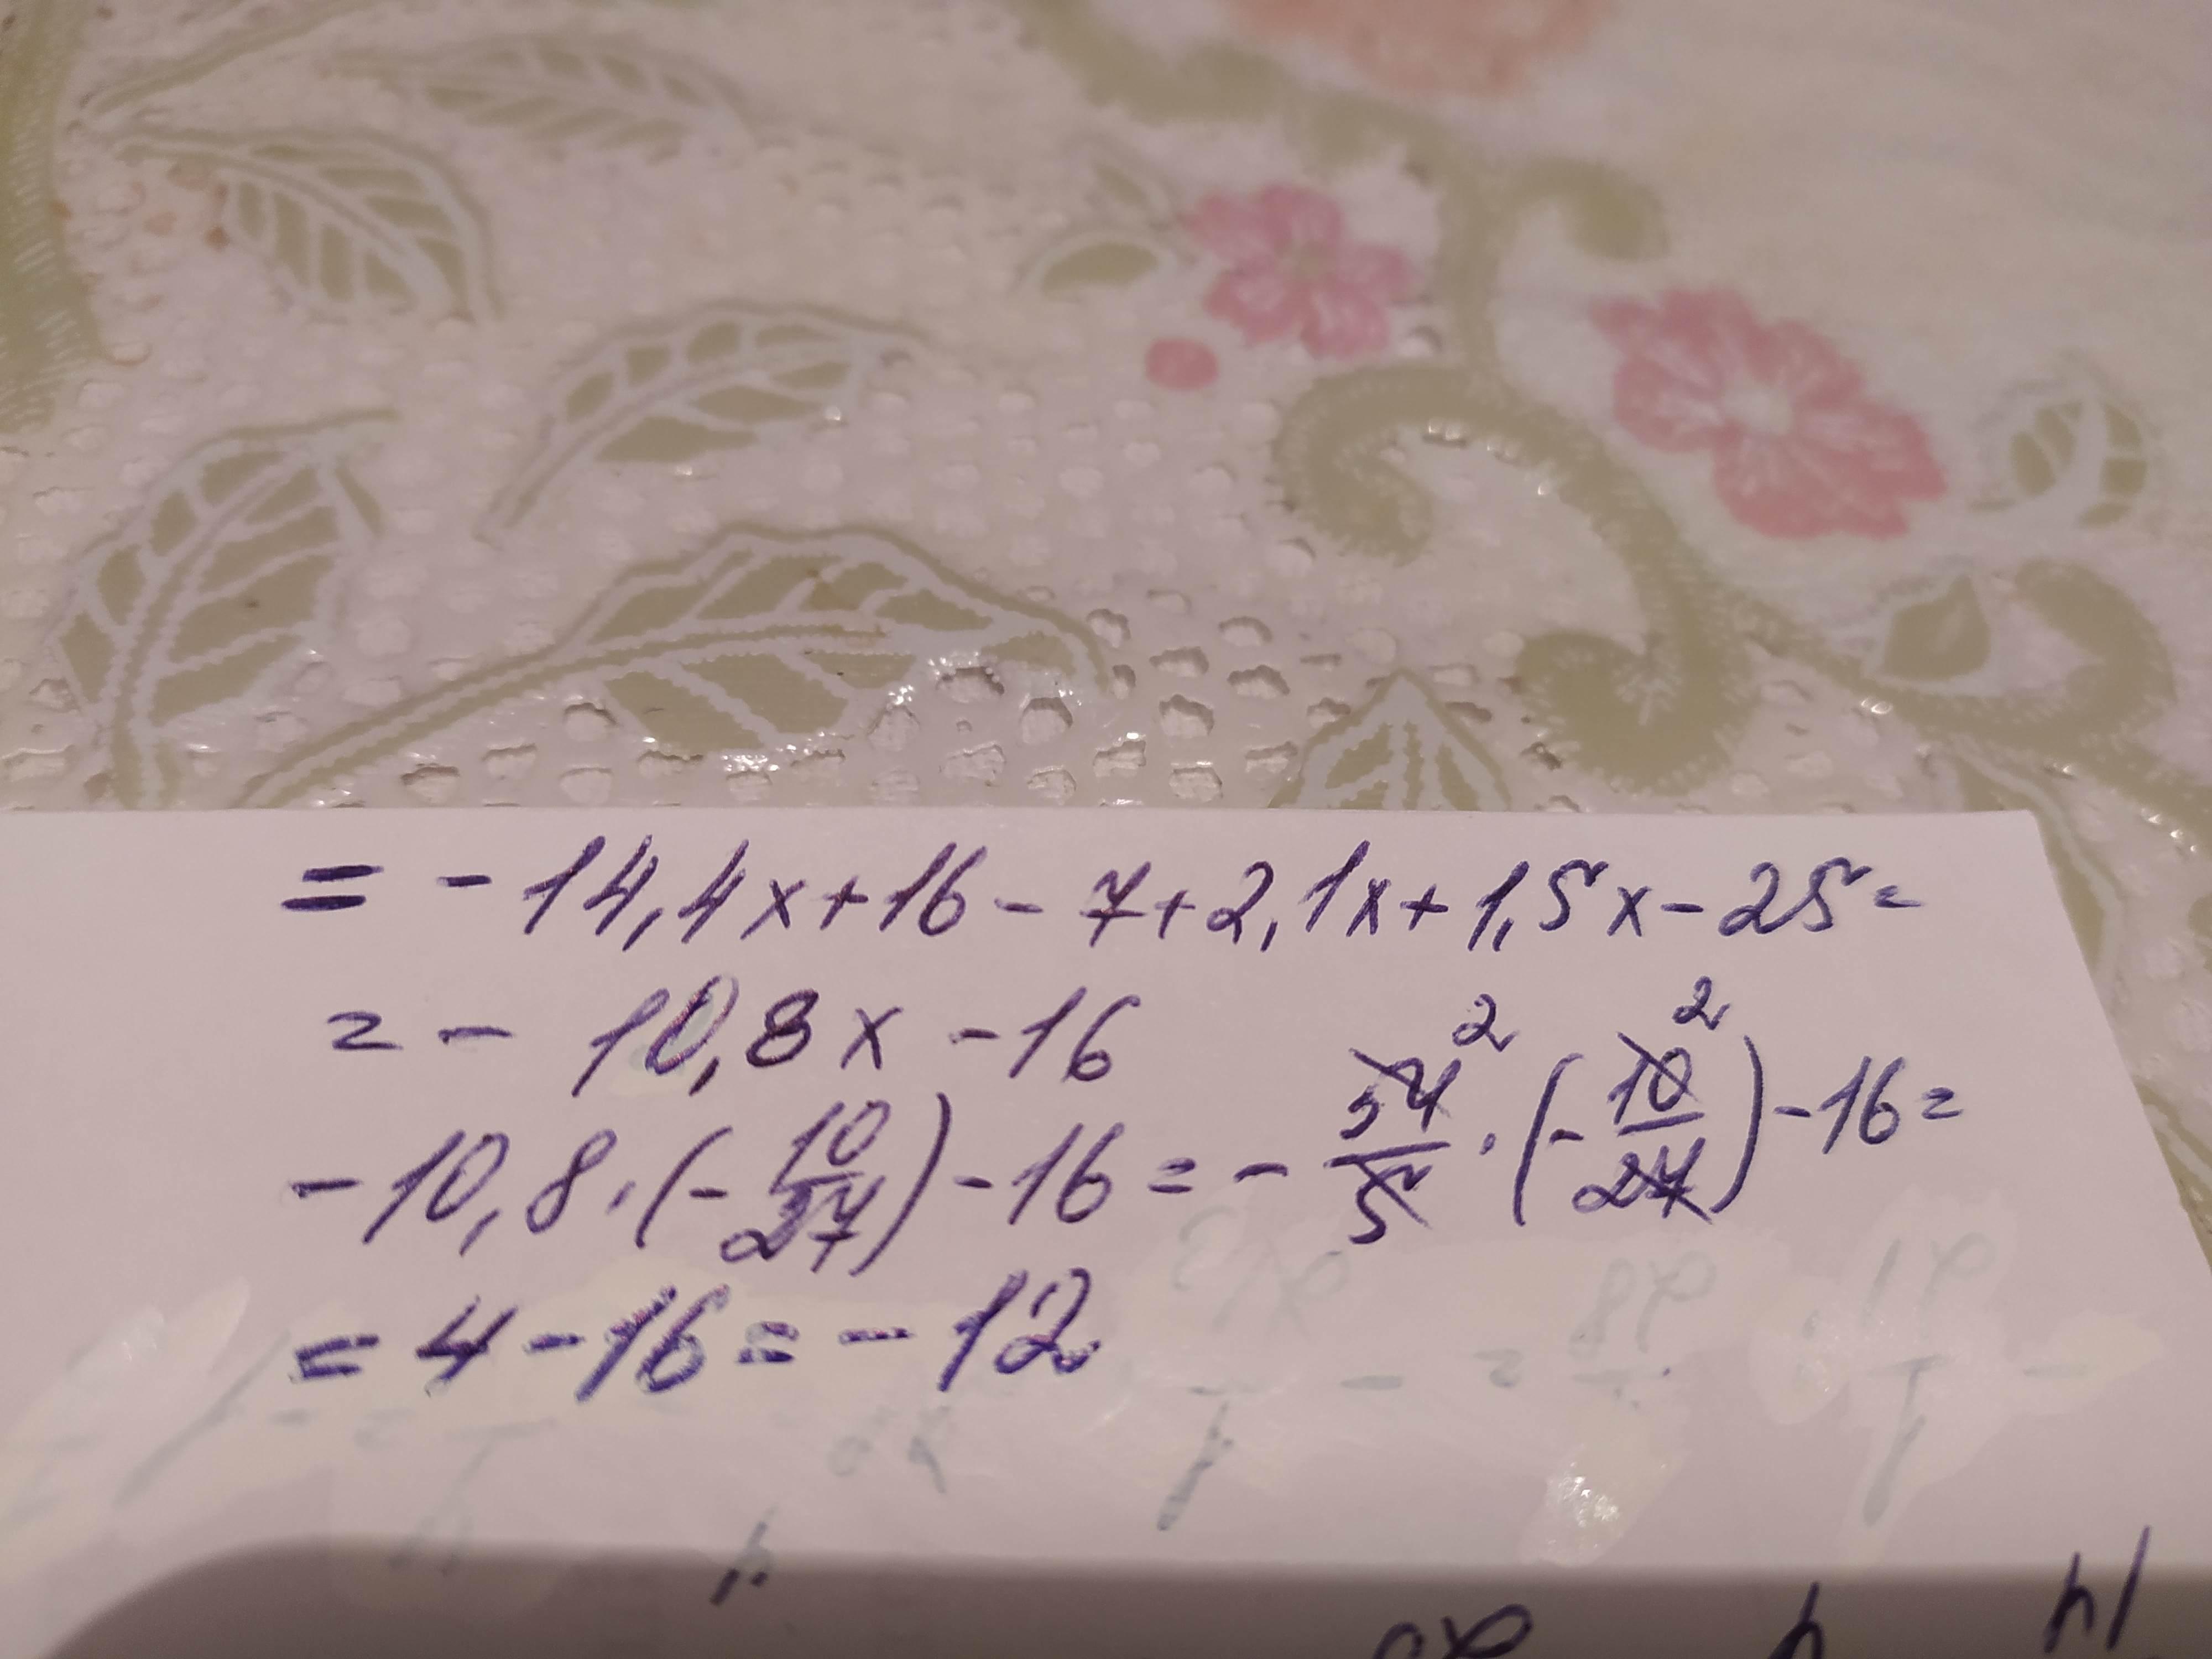 = - 14,4x + 16 - 7 + 2,1x + 1,5x - 25 =
= - 10,8x - 16
- 10,8 · (- 10/27) - 16 = - 54/5 2 · (- 10/27 2) - 16 =
= 4 - 16 = - 12